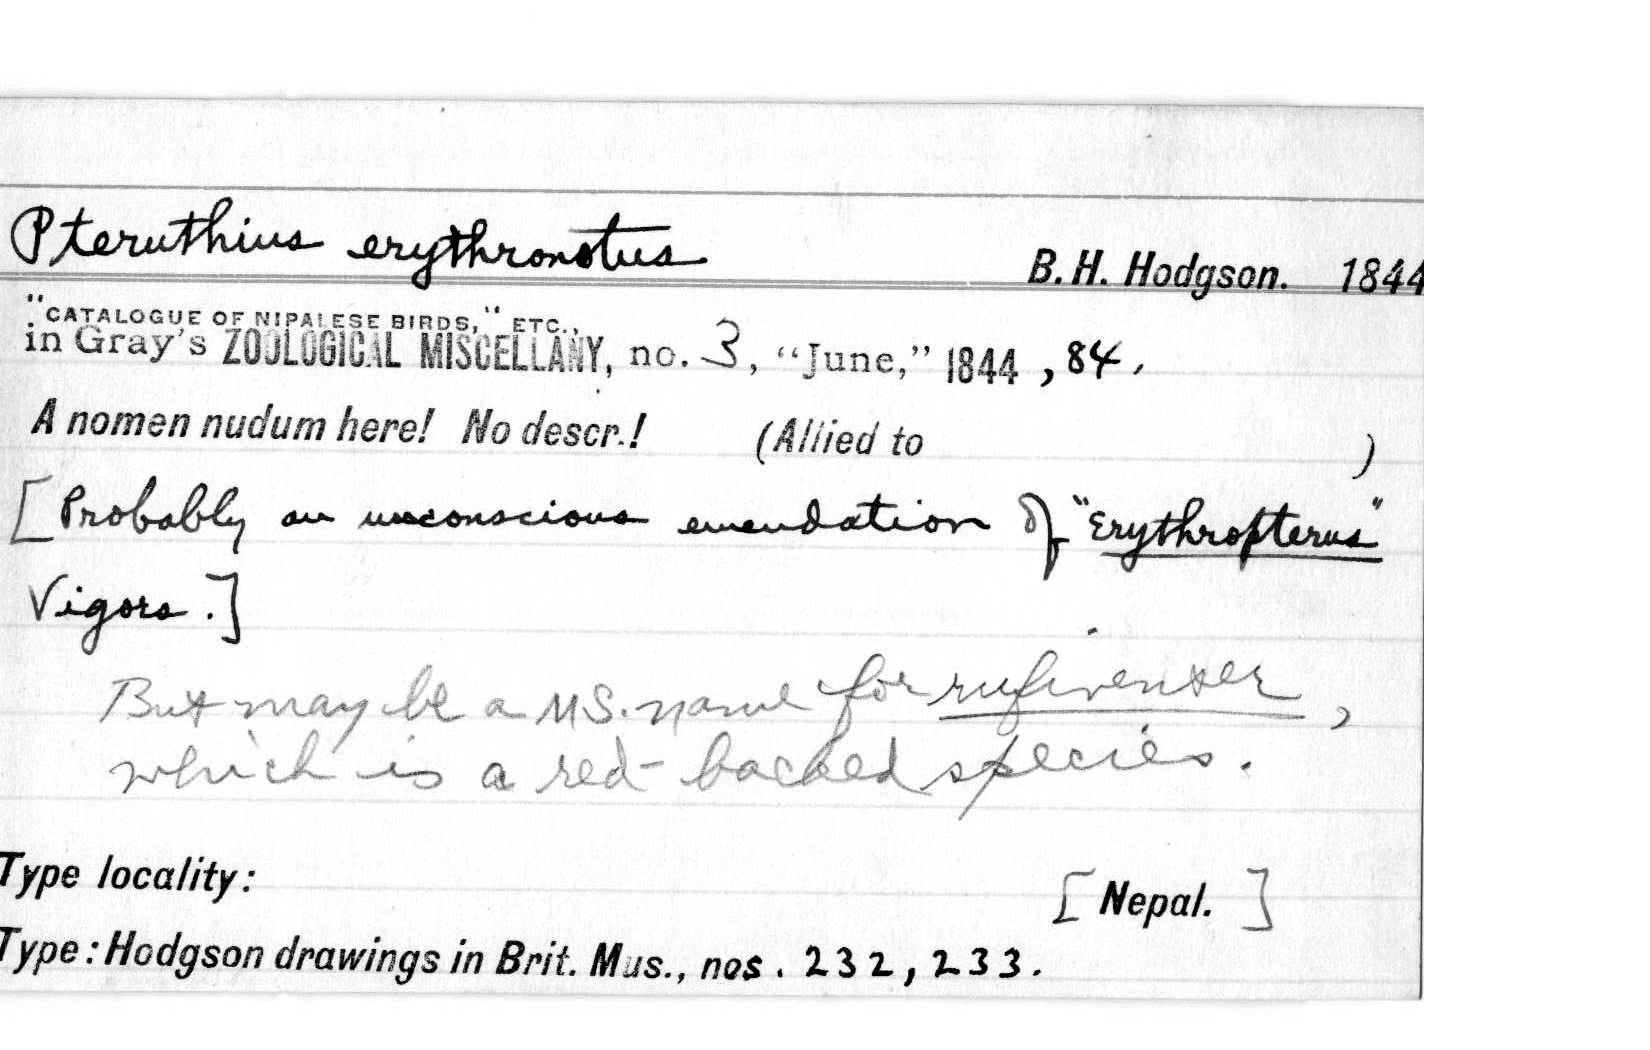 Pteruthius erythronotus B. H. Hodgson. 1844
"CATALOGUE OF NIPALESE BIRDS," ETC.,
in Gray's ZOOLOGICAL MISCELLANY, no. 3, "June," 1844, 84.
A nomen nudum here! No descr.! (Allied to )
[Probably an unconscious emendation of "Erythropterus"
Vigors.]
But may be a MS. name for rufiventer,
which is a red-backed species.
Type locality: [Nepal.]
Type: Hodgson drawings in Brit. Mus., nos. 232, 233.